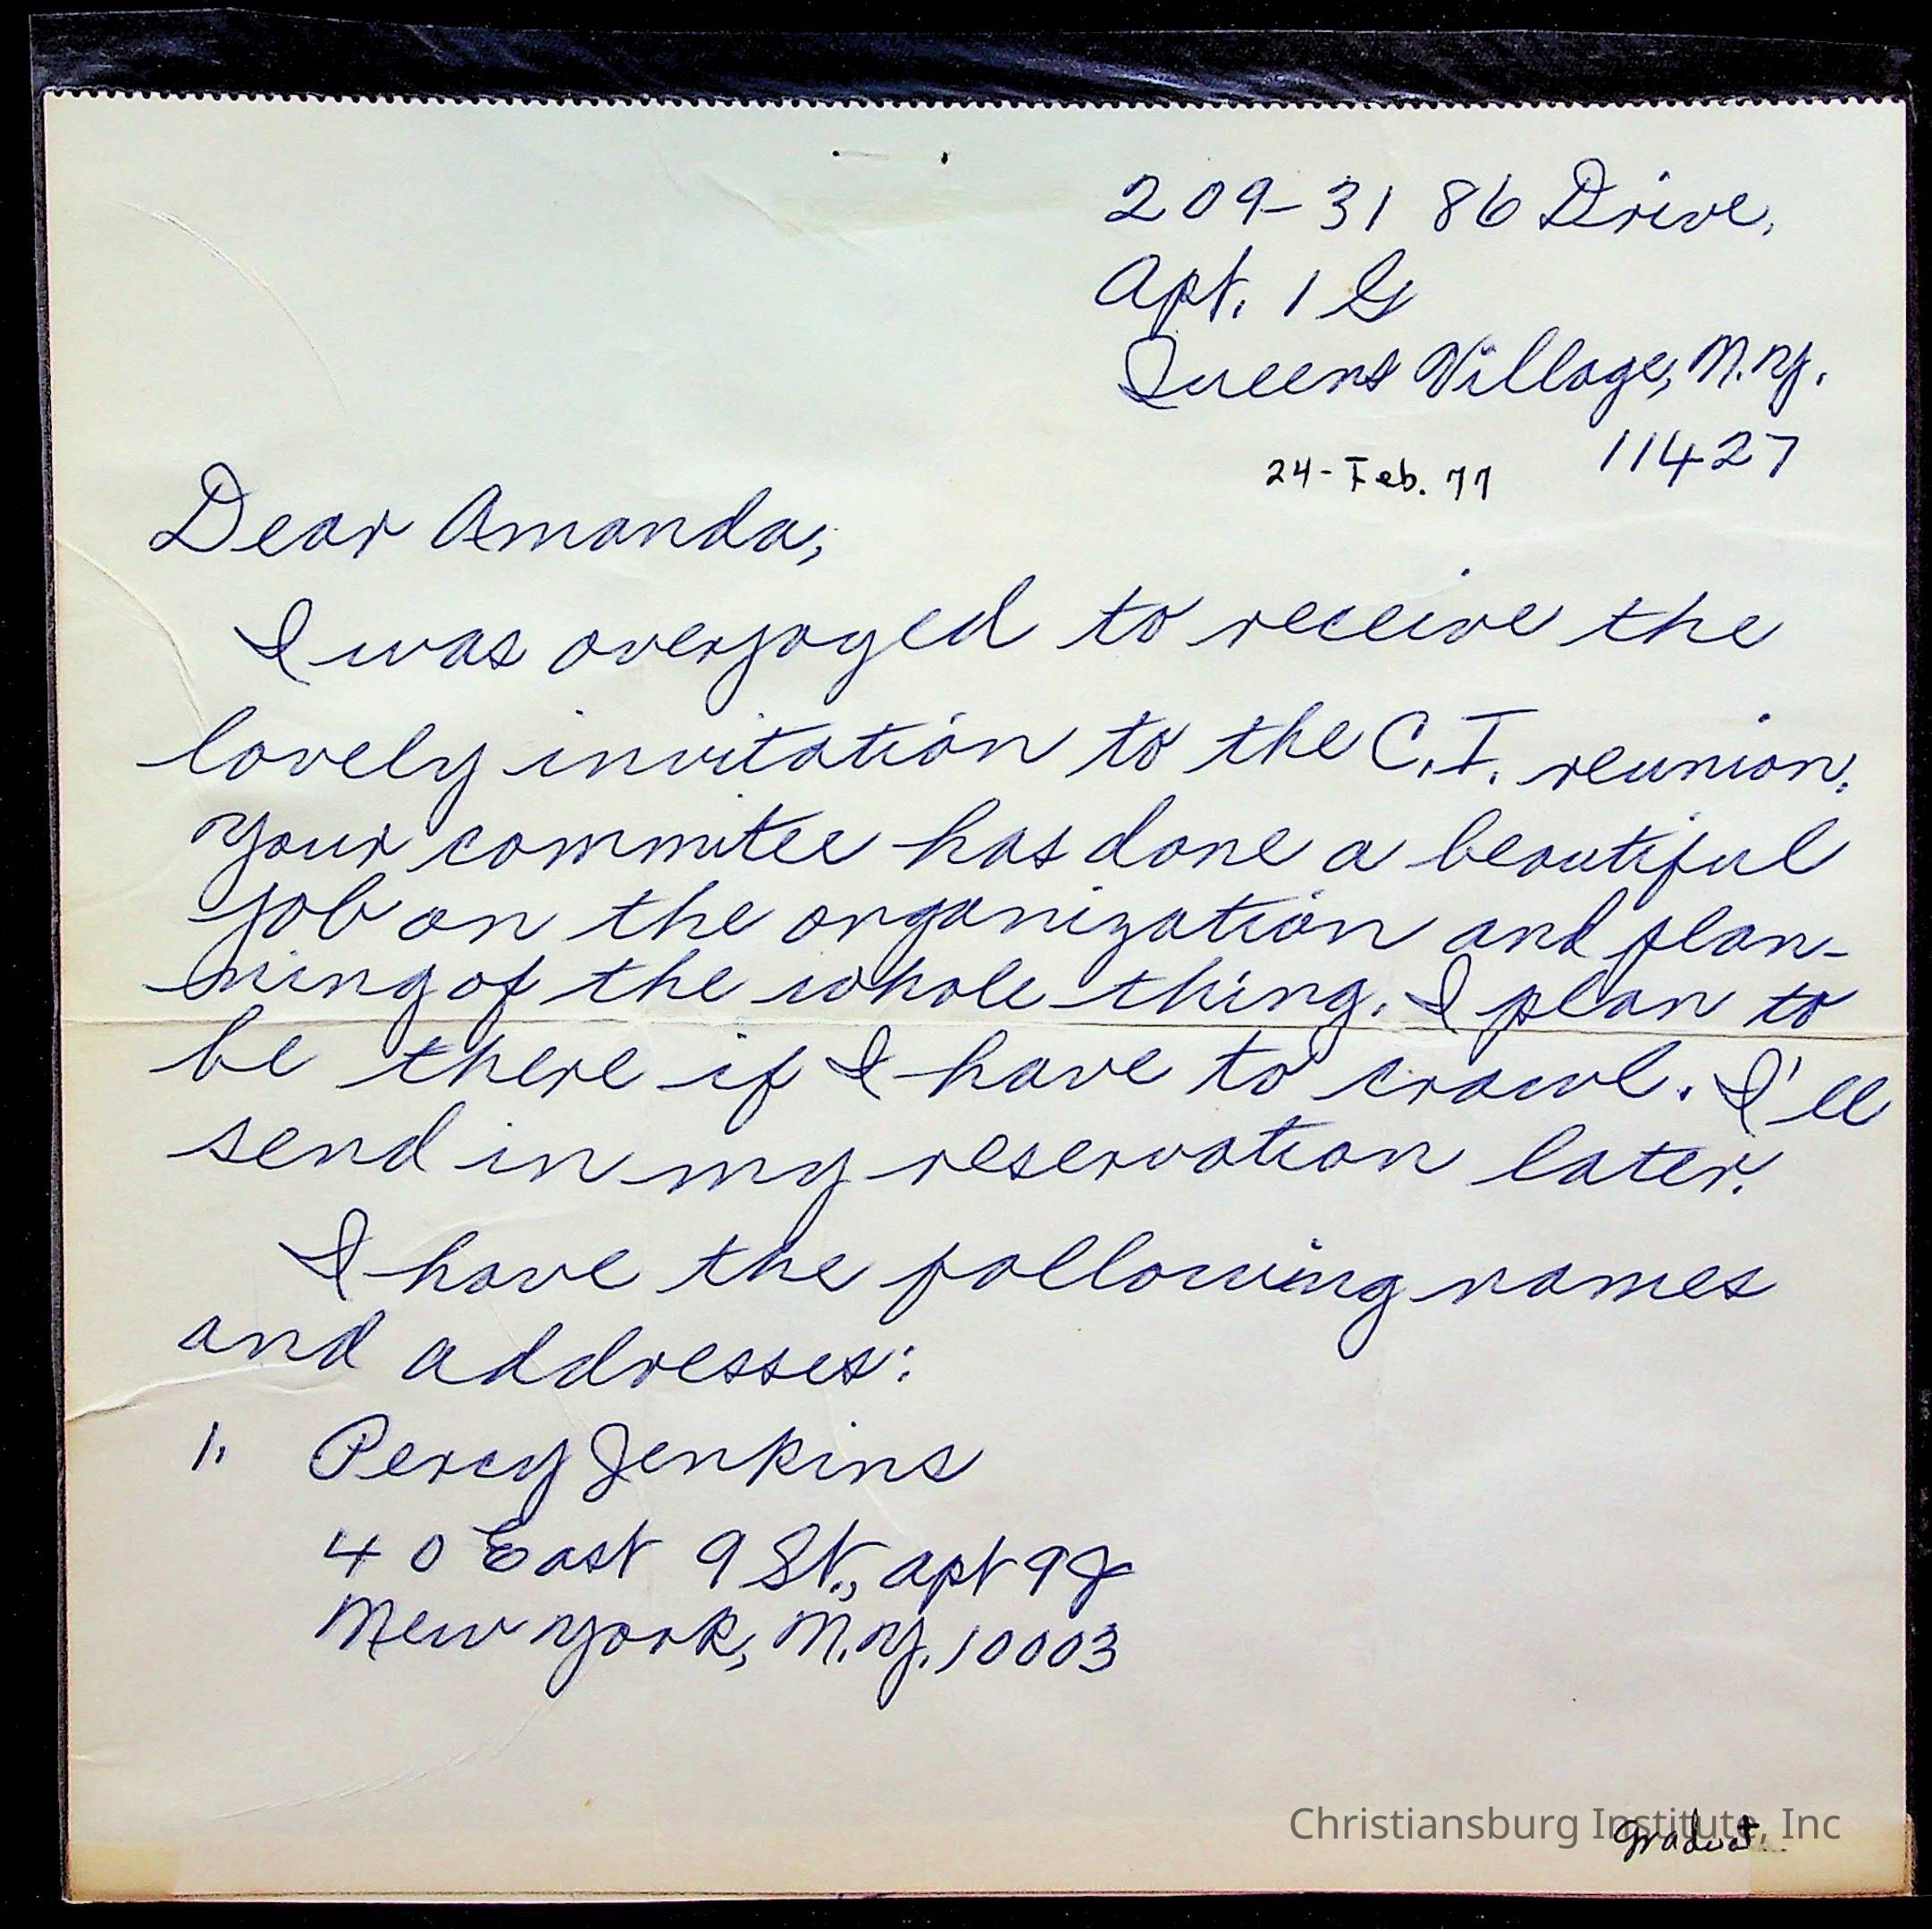 209-31 86 Drive,
Apt. 1G
Queens Village, N.Y.
11427
24-Feb. 77
Dear Amanda,
I was overjoyed to receive the
lovely invitation to the C.I. reunion.
Your commitee has done a beautiful
job on the organization and plan-
ning of the whole thing. I plan to
be there if I have to crawl. I'll
send in my reservation later.
I have the following names
and addresses:
1. Percy Jenkins
40 East 9 St., apt 9J
New York, N.Y. 10003
Christiansburg Institute, Inc